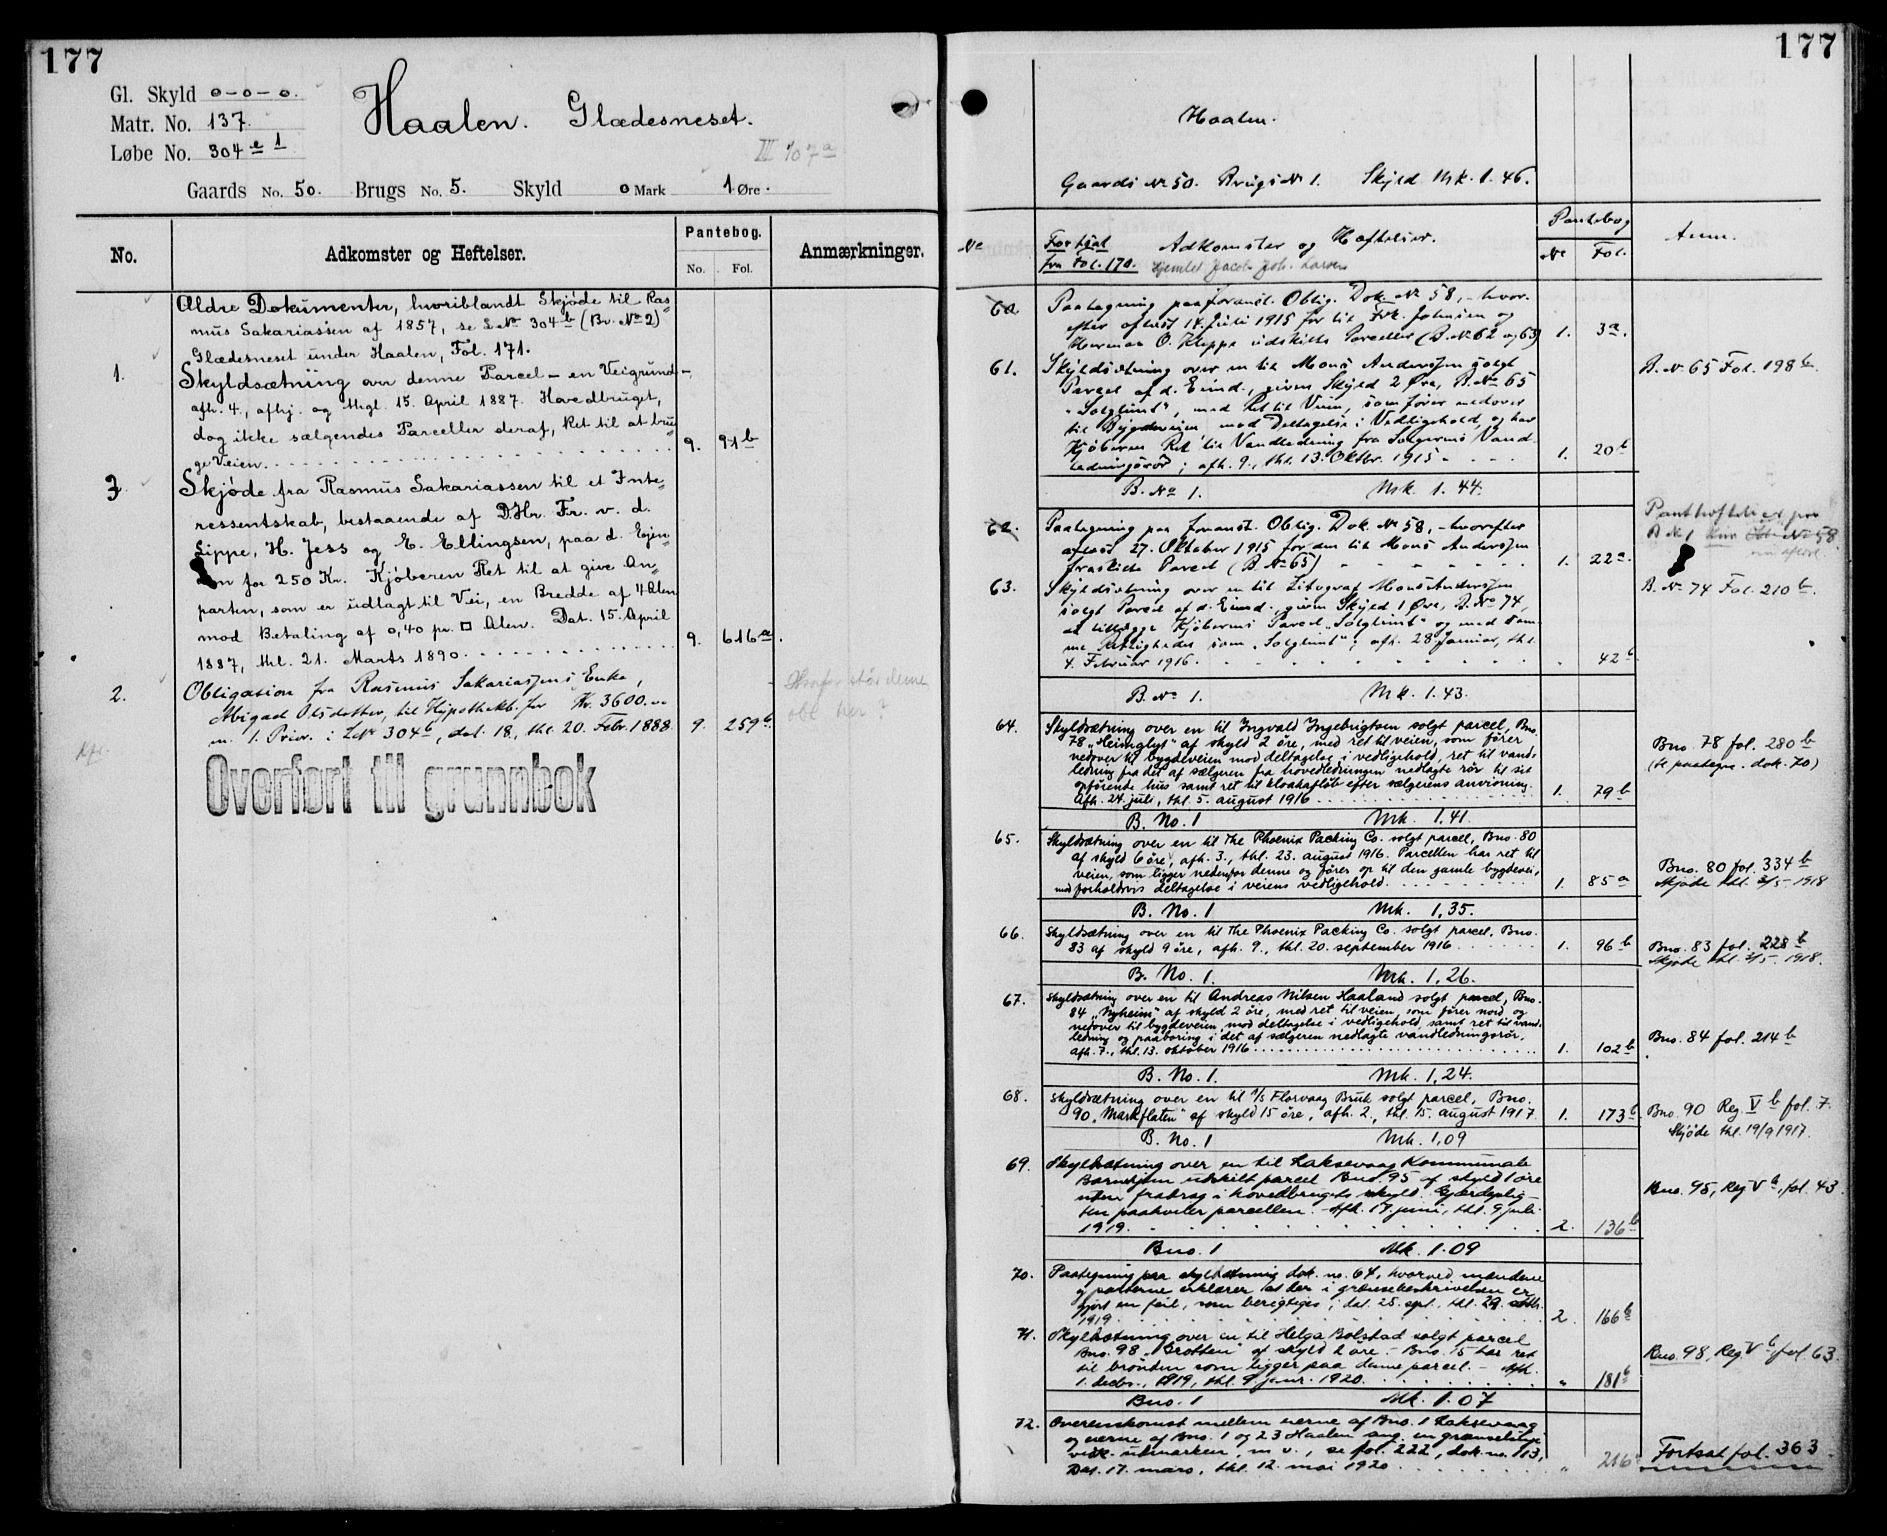 177
Gl. Skyld 0-0-0.
Matr. No. 137.
Løbe No. 304 e 1
Haalen. Glædesneset.
III 107a
Gaards No. 50. Brugs No. 5. Skyld 0 Mark 1 Øre.
No. Adkomster og Heftelser. Pantebog. No. Fol. Anmærkninger.
Ældre Dokumenter, hvoriblandt Skjøde til Ras=
mus Sakariassen af 1857, se L No 304b (Br. No 2)
Glædesneset under Haalen, Fol. 171.
1. Skyldsætning over denne Parcel – en Veigrund –,
afh. 4., afhj. og thgl. 15. April 1887. Hovedbruget,
dog ikke sælgendes Parceller deraf, Ret til at bru=
ge Veien. 9. 91b
3. Skjøde fra Rasmus Sakariassen til et Inte=
ressentskab, bestaaende af DHr. Fr. v. d.
Lippe, H. Jess og E. Ellingsen, paa d. Ejen=
dom for 250 Kr. Kjøberen Ret til at give An=
parten, som er udlagt til Vei, en Bredde af 4 Alen
mod Betaling af 0,40 pr. □ Alen. Dat. 15. April
1887, thl. 21. Marts 1890. 9. 616a.
2. Obligasion fra Rasmus Sakariassens Enke,
Abigael Olsdatter, til Hypothekb. for Kr. 3600.
m. 1. Prior. i LNo 304b, dat. 18., thl. 20. Febr. 1888. 9. 259b.
Hvorfor står denne
obl. her?
Overført til grunnbok
177
Haalen.
Gaards No 50. Brugs No 1. Skyld Mk. 1.46.
No Fortsat
fra Fol. 170. Adkomster og Hæftelser. Pantebog No Fol. Anm.
Hjemlet Jacob Joh. Larsen
60. Paategning paa foranst. Oblig. Dok. No 58, – hvor-
efter aflæst 14. Juli 1915 for til Frk. Johnsen og
Herman O. Kleppe udskilte Parceller (B. No 62 og 63) 1. 3a.
61. Skyldsætning over en til Mons Anderssen solgt
Parcel af d. Eiend., given Skyld 2 Øre, B. No 65
"Solglimt", med Ret til Veien, som fører nedover
til Bygdeveien mod Deltagelse i Vedligehold, og har
Kjøberen Ret til Vandledning fra Sælgerens Vand-
ledningsrør; afh. 9., thl. 13. Oktbr. 1915 1. 20b
B. No 65 Fol. 198b.
B. No 1. Mk. 1.44.
62. Paategning paa foranst. Oblig. Dok. No 58, – hvorefter
aflæst 27. Oktober 1915 for den til Mons Anderssen
fraskilte Parcel (B. No 65) 1. 22a.
Panthæftelser paa
B No 1 kun Dok No 58
nu aflæst
63. Skyldsætning over en til Litograf Mons Anderssen
solgt Parcel af d. Eiend., given Skyld 1 Øre, B. No 74,
at tillægge Kjøberens Parcel "Solglimt" og med sam-
me Rettigheder som "Solglimt"; afh. 28. Januar, thl.
4. Februar 1916. " 42b
B. No 74 Fol. 210b.
B. No 1. Mk. 1.43.
64. Skyldsætning over en til Ingvald Ingebrigtsen solgt parcel, Bno.
78 "Heimglyt" af skyld 2 øre, med ret til veien, som fører
nedover til bygdeveien mod deltagelse i vedligehold, ret til vand-
ledning fra det af sælgeren fra hovedledningen nedlagte rør til sit
opførende hus samt ret til kloakafløb efter sælgerens anvisning.
Afh. 24. juli, thl. 5. august 1916 1. 79b
Bno. 78 fol. 280b
(se paategn. dok. 70)
B. No. 1 Mk. 1,41.
65. Skyldsætning over en til The Phoenix Packing Co. solgt parcel, Bno. 80
af skyld 6 øre, afh. 3., thl. 23. august 1916. Parcellen har ret til
veien, som ligger nedenfor denne og fører op til den gamle bygdevei,
mod forholdsvis deltagelse i veiens vedligehold. 1. 85a
Bno. 80 fol. 334b
Skjøde thl. 3/5 1918
B. No. 1 Mk. 1,35.
66. Skyldsætning over en til The Phoenix Packing Co. solgt parcel, Bno.
83 af skyld 9 øre, afh. 9., thl. 20. september 1916 1. 96b
Bno. 83 fol. 228b
Skjøde thl. 3/5 1918.
B. No. 1. Mk. 1,26.
67. Skyldsætning over en til Andreas Nilsen Haaland solgt parcel, Bno.
84 "Nyheim" af skyld 2 øre, med ret til veien, som fører nord og
nedover til bygdeveien mod deltagelse i vedligehold samt ret til vand-
ledning og paaboring i det af sælgeren nedlagte vandledningsrør.
Afh. 7., thl. 13. oktober 1916 1. 102b
Bno. 84 fol. 214b
B. No. 1. Mk. 1,24.
68. Skyldsætning over en til A/S Florvaag Bruk solgt parcel, Bno.
90 "Markflaten" af skyld 15 øre, afh. 2., thl. 15. august 1917. 1. 173b
Bno. 90 Reg. V b fol. 7.
Skjøde thl. 19/9 1917.
B. No. 1 Mk. 1,09
69. Skyldsætning over en til Laksevaag Kommunale
Barnehjem utskilt parcel Bno. 95 af skyld 1 øre
uten fradrag i hovedbrugets skyld. Gjærdeplig-
ten paahviler parcellen. – Afh. 17. juni, thl. 9. juli
1919. 2. 136b
Bno. 95, Reg. V b, fol. 43.
Bno. 1 Mk. 1.09
70. Paategning paa skyldsætning dok. no. 64, hvorved mændene
og parterne erklærer at der i grænsebeskrivelsen er
gjort en feil, som berigtiges; dat. 25. sept., thl. 29. oktbr.
1919. 2. 166b
71. Skyldsætning over en til Helga Bolstad solgt parcel
Bno. 98 "Brotten" af skyld 2 øre. – Bno. 15 har ret
til brønden som ligger paa denne parcel. – Afh.
1. decbr., 1919, thl. 9. janr. 1920. " 181b
Bno. 98, Reg. V b fol. 63.
Bno. 1 Mk. 1.07
72. Overenskomst mellem eierne af Bno. 1 Laksevaag
og eierne af Bno. 1 og 23 Haalen ang. en grænselinje
vedk. utmarken, m. v., se fol. 222, dok. no. 113,
Dat. 17. mars, thl. 12. mai 1920 " 216
Fortsat fol. 363